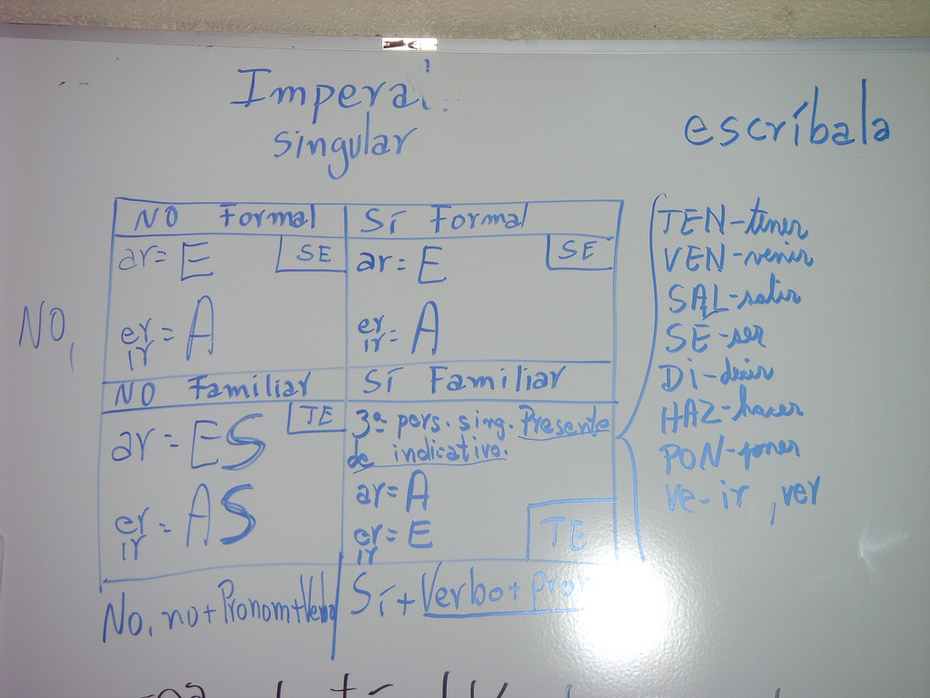 Imperai
singular
escríbala
NO Formal
SÍ Formal
ar = E
SE
ar = E
SE
er
ir = A
er
ir = A
NO,
NO Familiar
SÍ Familiar
ar = ES
TE
3ª pers. sing. Presente
de indicativo.
er
ir = AS
ar = A
er
ir = E
TE
No, no + Pronom + Verbo
SÍ + Verbo + Pro
TEN - tener
VEN - venir
SAL - salir
SÉ - ser
Di - decir
HAZ - hacer
PON - poner
Ve - ir, ver